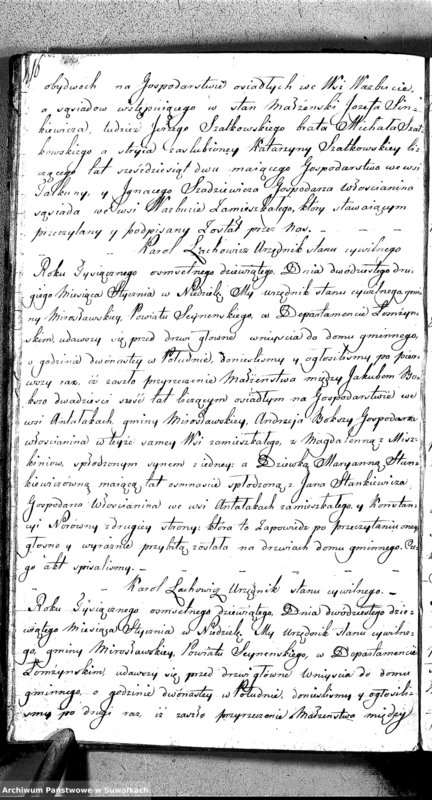 116
obydwoch na Gospodarstwie osiadłych we Wsi Warbucie,
a sąsiadow wstępuiącego w stan Małżenski Jozefa Sin-
kiewicza, tudzież Jurzego Szatkowskiego brata Michała Szat-
kowskiego a stryia zaślubioney Katarzyny Szatkowskiey li-
czącego lat szescdziesiąt dwa maiącego Gospodarstwo we wsi
y Jgnacego Szadziewicza Gospodarza Włościanina
sąsiada we wsi Warbucie Zamieszkałego, ktory stawaiącym
przeczytany y podpisany Został przez Nas.
Karol Lachowicz Urzędnik stanu cywilnego
Roku Tysiącznego osmsetnego dziewiątego, Dnia dwódziestego dru-
giego Miesiąca Stycznia w Niedzielę, My urzędnik stanu cywilnego gmi-
ny Mirosławskiey, Powiatu Seynenskiego, w Departamencie Łomżyn-
skim, udawszy się przed drzwi głowne wniyscia do domu gminnego,
o godzinie dwónastey w Południe, doniesliśmy y ogłosiliśmy po pier-
wszy raz, iż zaszło przyrzeczenie Małżenstwa między Jakubem Bok-
szo dwadziesci szesć lat liczącym osiadłym na Gospodarstwie we
wsi Antałakach, gminy Mirosławskiey, Andrzeja Bokszy Gospodarza
włościanina w teyże samey Wsi zamieszkałego, z Magdalenną z Misz-
kiniow, spłodzonym synem z iedney: a Dziewką Maryanną Stan-
kiewiczowną maiącą lat osmnascie spłodzoną z Jana Stankiewicza
Gospodarza Włościanina we wsi Antałakach zamieszkałego, y Konstan-
cyi Norowny z drugiey strony: ktora to Zapowiedz po przeczytaniu oney,
głosno y wyraznie przybitą została na drzwiach domu gminnego. Cze-
go akt spisaliśmy.
Karol Lachowicz Urzędnik stanu cywilnego.
Roku Tysiącznego osmsetnego dziewiątego, Dnia dwódziestego dzie-
wiątego Miesiąca Stycznia w Niedzielę, My Urzędnik stanu cywilne-
go, gminy Mirosławskiey, Powiatu Seynenskiego, w Departamencie
Łomżynskim, udawszy się przed drzwi głowne Wniyscia do domu
gminnego, o godzinie dwónastey w Południe, doniesliśmy y ogłosili-
śmy po drugi raz, iż zaszło przyrzeczenie Małżenstwa między
Archiwum Państwowe w Suwałkach